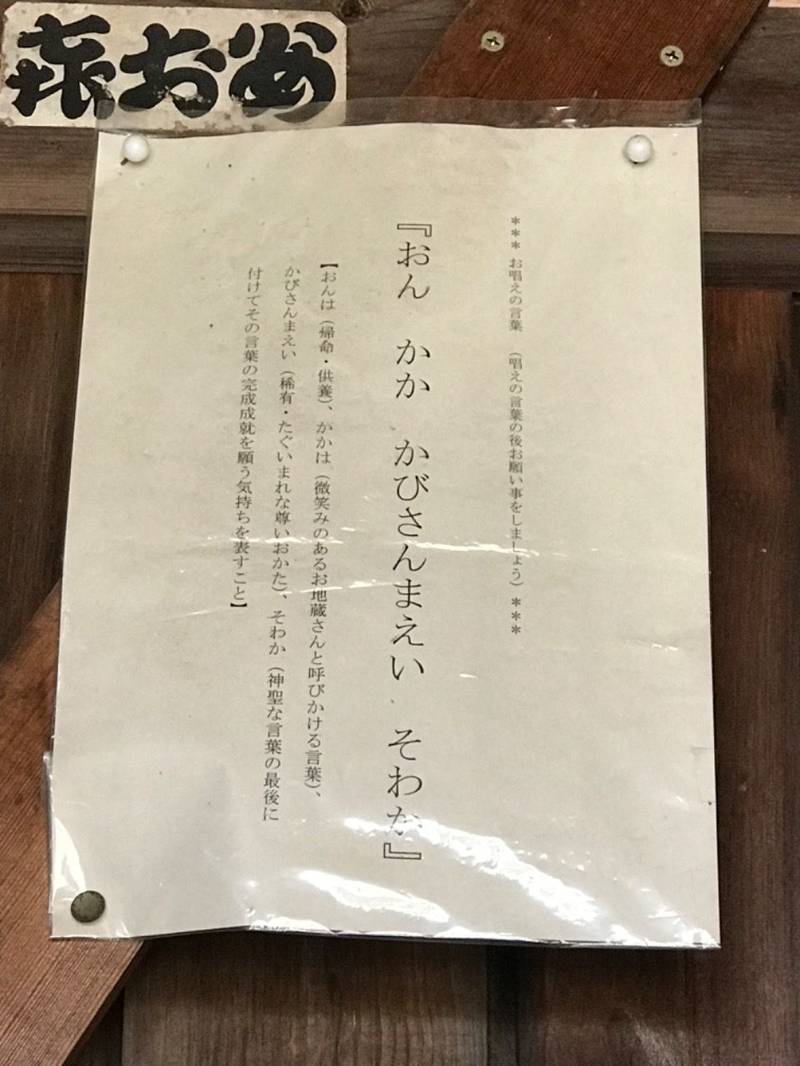 ＊＊＊ お唱えの言葉 （唱えの言葉の後お願い事をしましょう） ＊＊＊
『おん　かか　かびさんまえい　そわか』
【おんは（帰命・供養）、かかは（微笑みのあるお地蔵さんと呼びかける言葉）、
かびさんまえい（稀有・たぐいまれな尊いおかた）、そわか（神聖な言葉の最後に
付けてその言葉の完成成就を願う気持ちを表すこと】